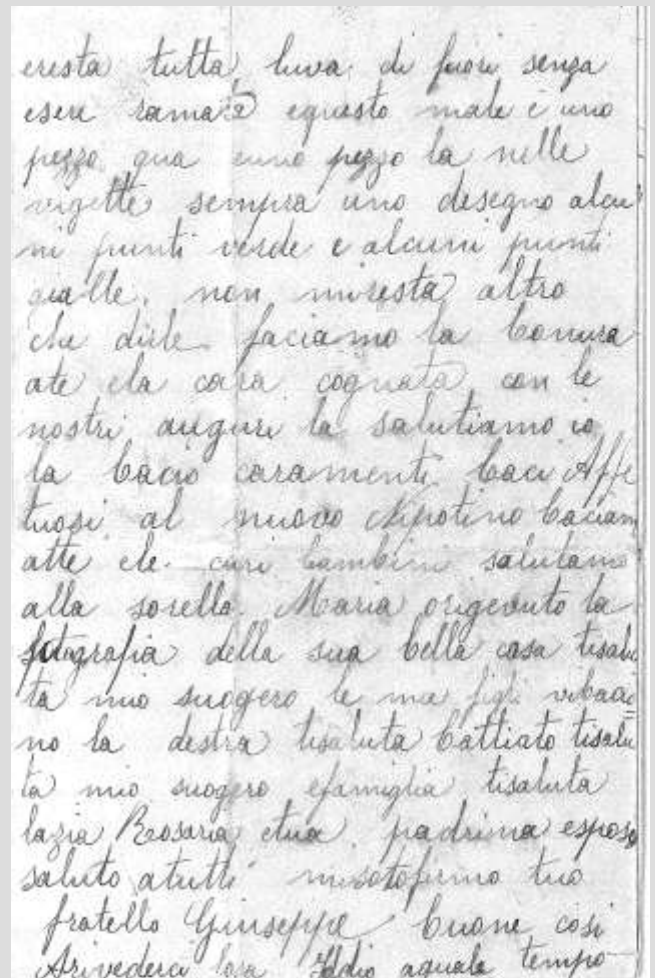 eresta tutta luva di fuori senza
esere rama e questo male è uno
pezzo qua euno pezzo la nelle
vigette sempra uno desegno alcu
ni punti verde e alcuni punti
gialle. non miresta altro
che dirle faciamo la bonura
ate ela cara cognata con le
nostri auguri la salutiamo io
la bacio caramenti baci Affe
tuosi al nuovo Nipotino baciam
atte ele cari bambini salutamo
alla sorella Maria origevuto la
fotografia della sua bella casa tisalu
ta mio suogero le mei figli vibacia
no la destra tisaluta Battiato tisalu
ta mio suogero efamiglia tisaluta
lazia Rosaria etua padrina esposo
saluto atutti misotofirmo tuo
fratello Giuseppe buone cosi
Arivederci losa Iddio aquale tempo